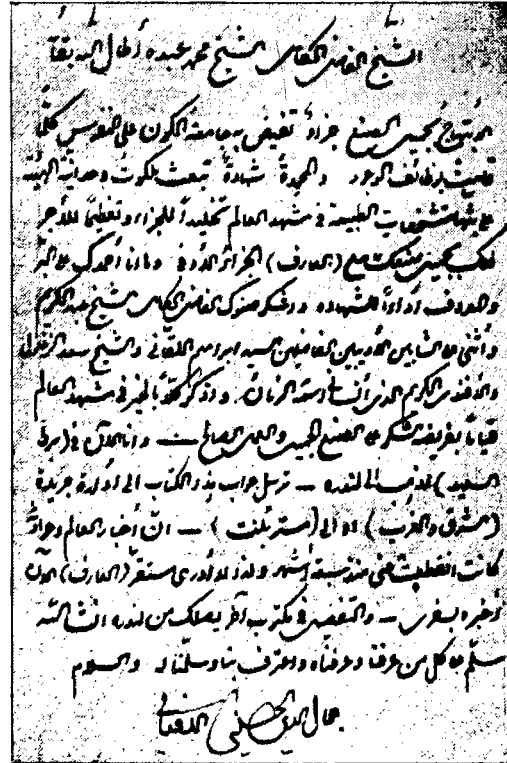 الشيخ الفاضل الكامل الشيخ محمد عبده أطال الله بقاءه
الابتهاج بحسن الصنع جزاء تفيض به جامعة الكون على النفوس كلما
قامت بوظائف الوجود والمحمدة شهادة تبعث بملكوت وحدانية الهيئة
على بثها مشوقات الطبيعة في مشهد العالم تخليداً للجزاء وتعظيماً للأجر
فلك بحسن صنيعك مع (العارف) الجزاء الأوفى وها أنا أحمدك على البر
والمعروف أداءً للشهادة وأشكر صنوك الفاضل الكامل الشيخ عبد الكريم
وأثني على الشابين الأديبين الفاضلين السيد ابراهيم اللقاني والشيخ سعد الزغلول
والأفندي الكريم الذي في الزمان وأذكر كلاً بالخير في مشهد العالم
قياماً بفريضة الشكر على الصنع الجميل والعمل الصالح — وأنا الآن في (برت
السعيد) أذهب الى لندره — نرسل جواب هذا الكتاب الى ادارة جريدة
(الشرق والغرب) او الى (مستر بلنت) — انّ أخبار العالم وحوادثه
كانت انقطعت عني منذ سبعة أشهر ولذا لا أدري مستقر (العارف) الآن
أخبره بسفري — والتفصيل في مكتوب آخر يصلك من لندره انشاء الله
سلّم على كل من عرفنا وعرفناه واعترف بنا وسلّمنا له والسلام
جمال الدين الحسيني الافغاني